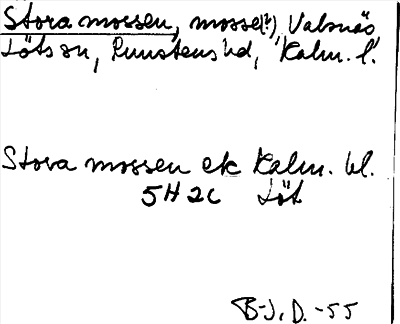 Stora mossen, mosse(?), Valsnäs,
Löts sn, Runstens hd, Kalm. l.
Stora mossen ek Kalm. bl.
5H 2c Löt
B-J. D. -55